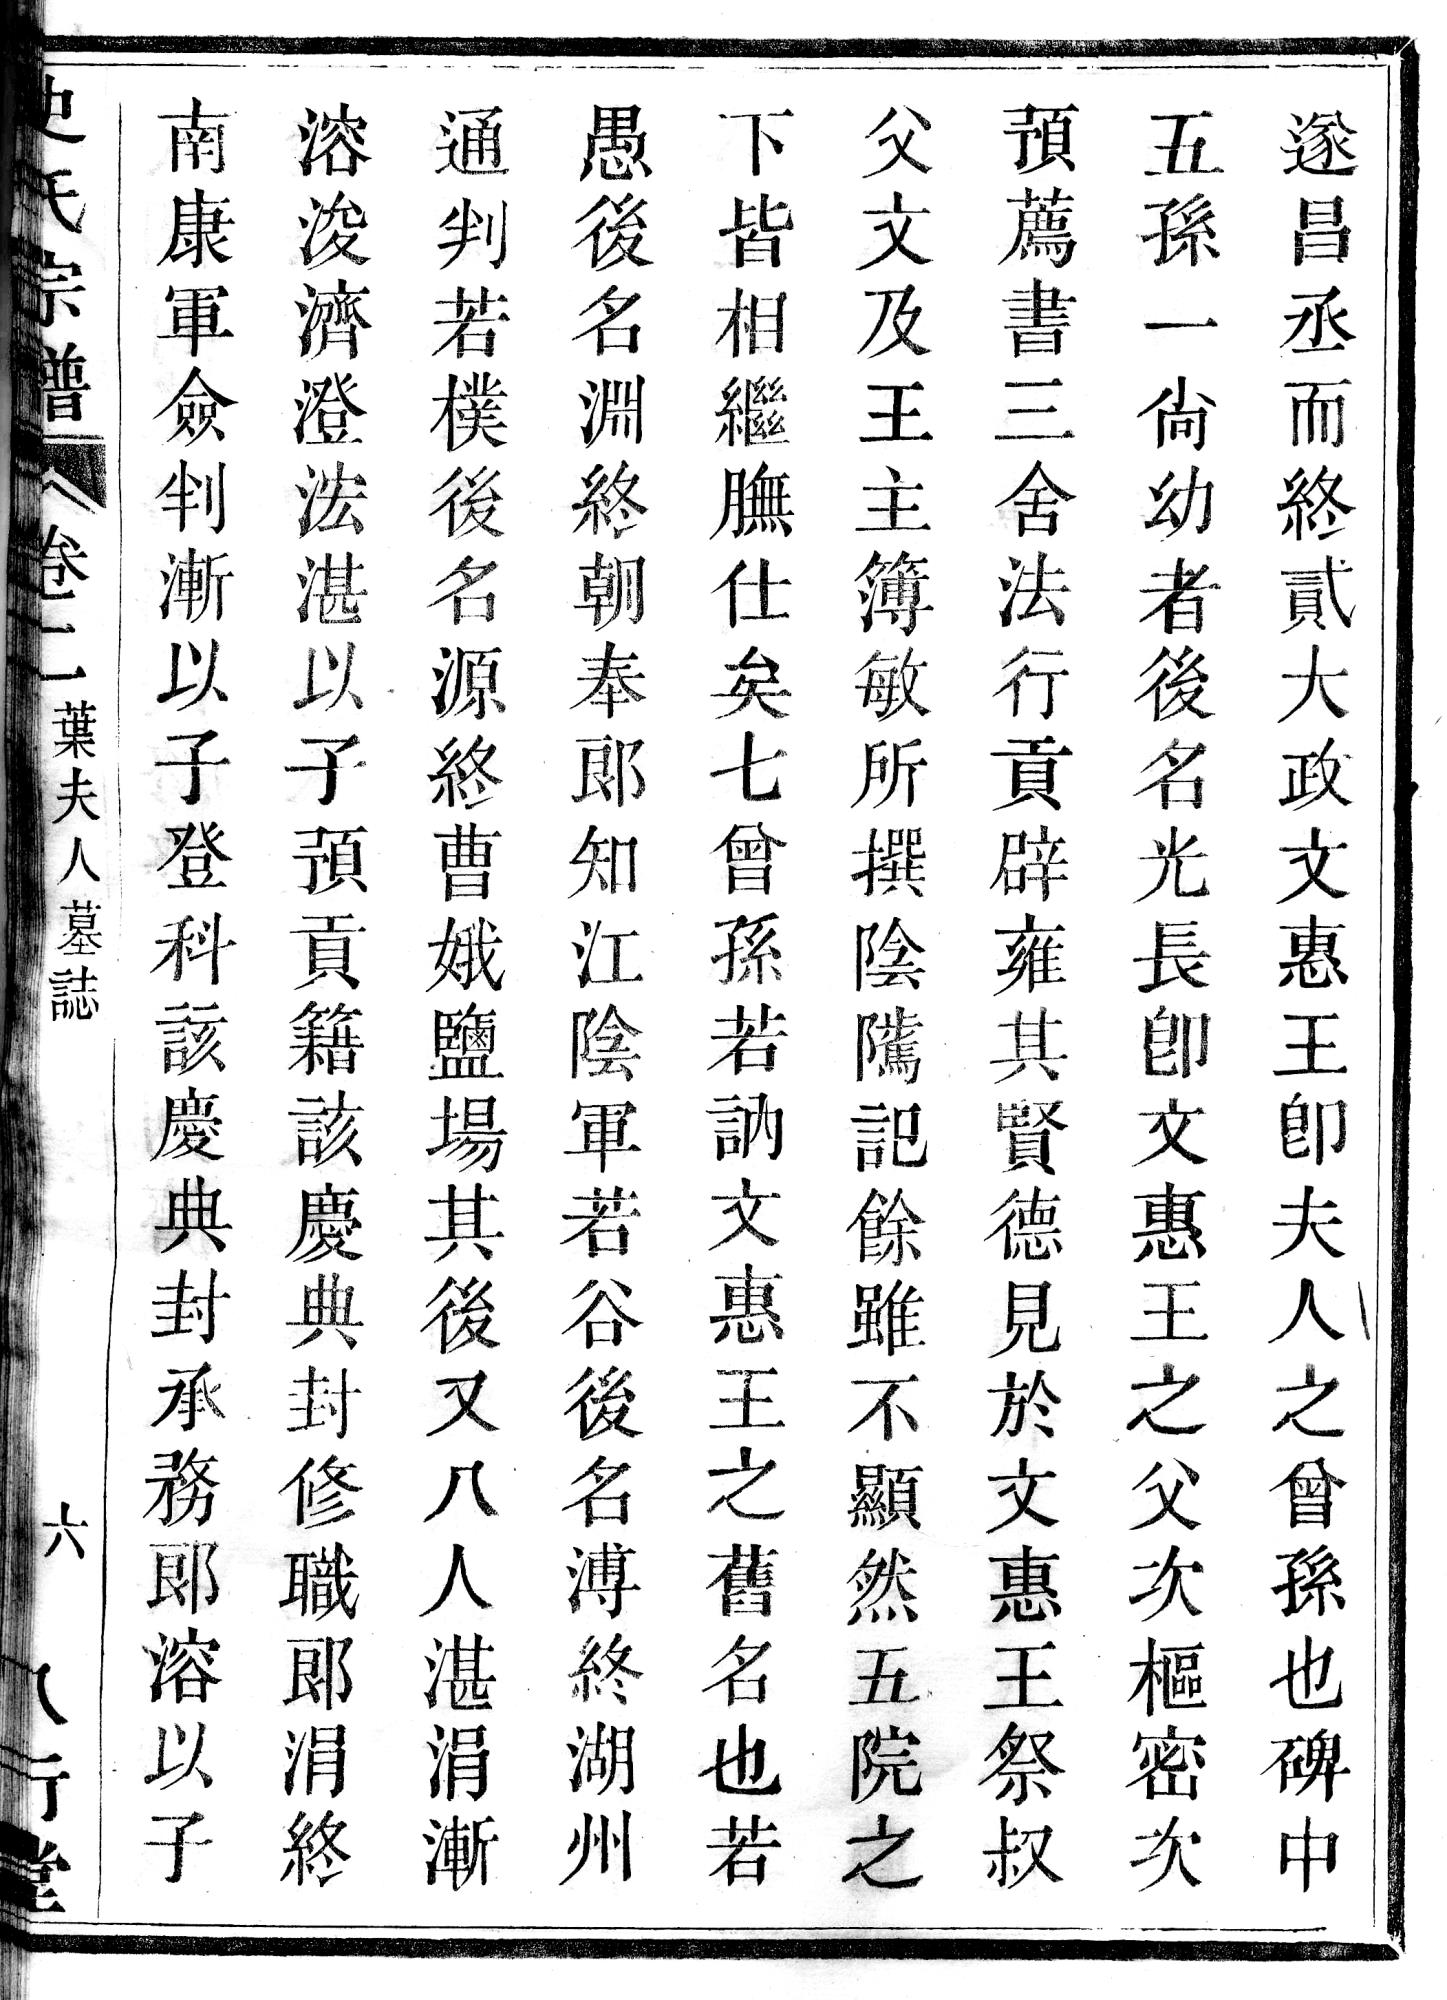 遂昌丞而終貳大政文惠王卽夫人之曾孫也碑中
五孫一尙幼者後名光長卽文惠王之父次樞密次
預薦書三舍法行貢辟雍其賢德見於文惠王祭叔
父文及王主簿敏所撰陰隲記餘雖不顯然五院之
下皆相繼膴仕矣七曾孫若訥文惠王之舊名也若
愚後名淵終朝奉郎知江陰軍若谷後名溥終湖州
通判若樸後名源終曹娥鹽場其後又八人湛涓漸
溶浚濟澄浤湛以子預貢籍該慶典封修職郎涓終
南康軍僉判漸以子登科該慶典封承務郎溶以子
史氏宗譜
卷二
葉夫人墓誌
六
八行堂